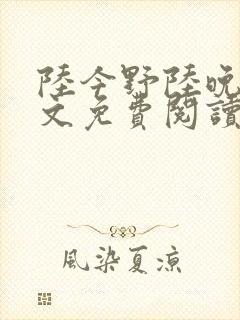 陸今野陸晚
文免費閱讀
風染夏涼